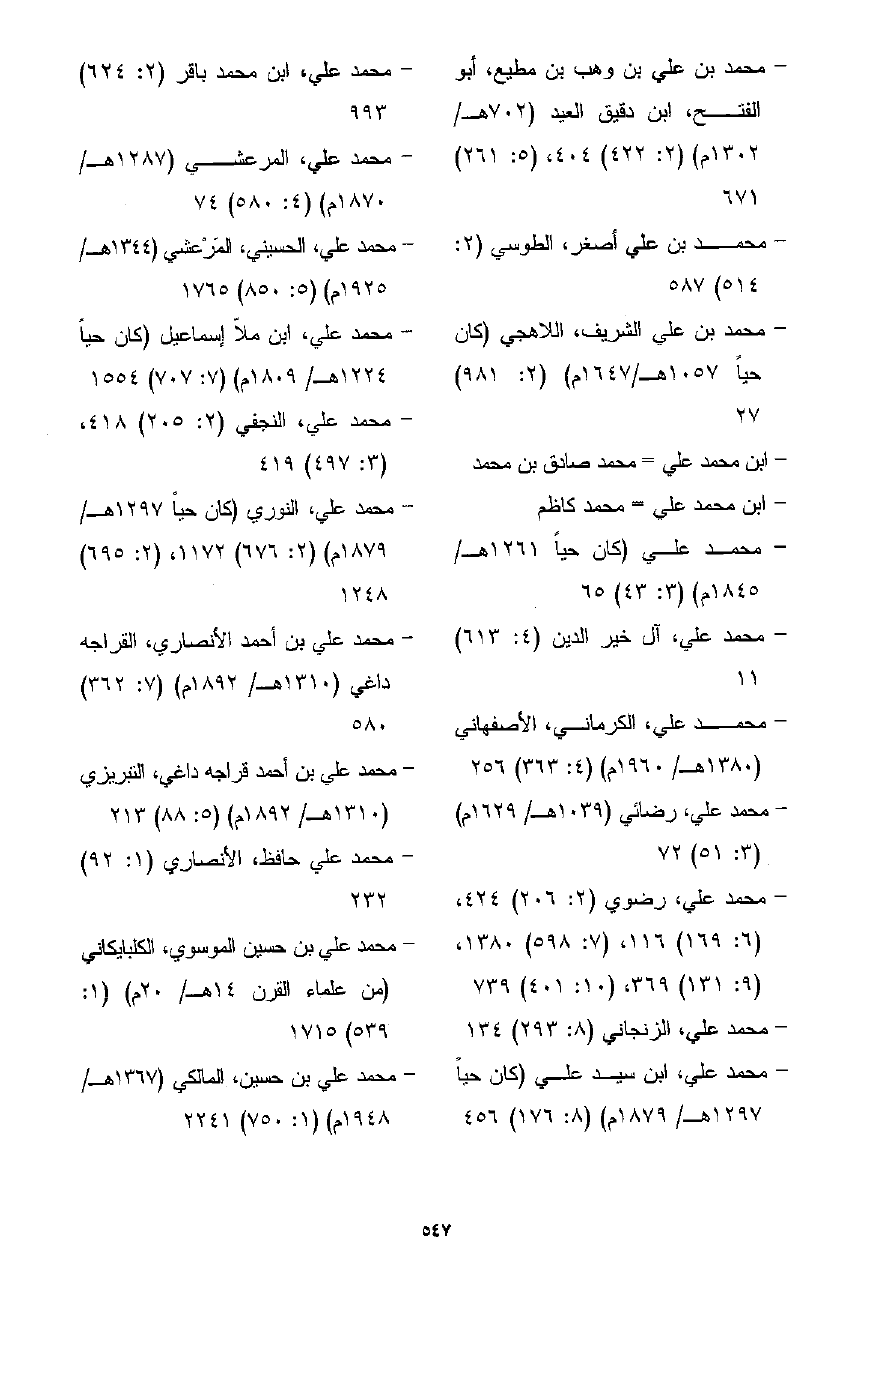 - محمد بن علي بن وهب بن مطيع، أبو
الفتـــح، ابن دقيق العيد (٧٠٢هـ/
١٣٠٢م) (٢: ٤٢٢) ٤٠٤، (٥: ٢٦١)
٦٧١
- محمـــد بن علي أصغر، الطوسي (٢:
٥١٤) ٥٨٧
- محمد بن علي الشريف، اللاهجي (كان
حياً ١٠٥٧هـ/١٦٤٧م) (٢: ٩٨١)
٢٧
- ابن محمد علي = محمد صادق بن محمد
- ابن محمد علي = محمد كاظم
- محمـد علـي (كان حياً ١٢٦١هـ/
١٨٤٥م) (٣: ٤٣) ٦٥
- محمد علي، آل خير الدين (٤: ٦١٣)
١١
- محمـــد علي، الكرمانـي، الأصفهاني
(١٣٨٠هـ/ ١٩٦٠م) (٤: ٣٦٣) ٢٥٦
- محمد علي، رضائي (١٠٣٩هـ/ ١٦٢٩م)
(٣: ٥١) ٧٢
- محمد علي، رضوي (٢: ٢٠٦) ٤٢٤،
(٦: ١٦٩) ١١٦، (٧: ٥٩٨) ١٣٨٠،
(٩: ١٣١) ٣٦٩، (١٠: ٤٠١) ٧٣٩
- محمد علي، الزنجاني (٨: ٢٩٣) ١٣٤
- محمد علي، ابن سيـد علـي (كان حياً
١٢٩٧هـ/ ١٨٧٩م) (٨: ١٧٦) ٤٥٦
- محمد علي، ابن محمد باقر (٢: ٦٢٤)
٩٩٣
- محمد علي، المرعشـــي (١٢٨٧هـ/
١٨٧٠م) (٤: ٥٨٠) ٧٤
- محمد علي، الحسيني، المَرْعشي (١٣٤٤هـ/
١٩٢٥م) (٥: ٨٥٠) ١٧٦٥
- محمد علي، ابن ملاّ إسماعيل (كان حياً
١٢٢٤هـ/ ١٨٠٩م) (٧: ٧٠٧) ١٥٥٤
- محمد علي، النجفي (٢: ٢٠٥) ٤١٨،
(٣: ٤٩٧) ٤١٩
- محمد علي، النوري (كان حياً ١٢٩٧هـ/
١٨٧٩م) (٢: ٦٧٦) ١١٧٢، (٢: ٦٩٥)
١٢٤٨
- محمد علي بن أحمد الأنصاري، القراجه
داغي (١٣١٠هـ/ ١٨٩٢م) (٧: ٣٦٢)
٥٨٠
- محمد علي بن أحمد قراجه داغي، التبريزي
(١٣١٠هـ/ ١٨٩٢م) (٥: ٨٨) ٢١٣
- محمد علي حافظ، الأنصاري (١: ٩٢)
٢٣٢
- محمد علي بن حسين الموسوي، الكلبايكاني
(من علماء القرن ١٤هـ/ ٢٠م) (١:
٥٣٩) ١٧١٥
- محمد علي بن حسين، المالكي (١٣٦٧هـ/
١٩٤٨م) (١: ٧٥٠) ٢٢٤١
٥٤٧